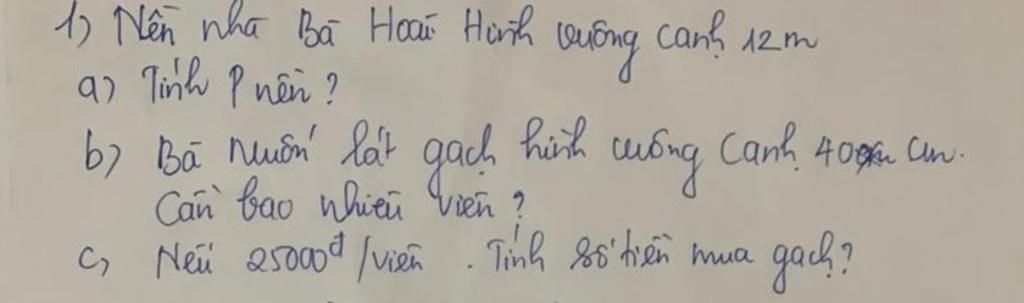 1) Nền nhà Bà Hoài Hình vuông cạnh 12m
a) Tính P nền?
b) Bà muốn lát gạch hình vuông cạnh 40 cm.
Cần bao nhiêu viên?
c) Nếu 25000đ/viên. Tính số tiền mua gạch?